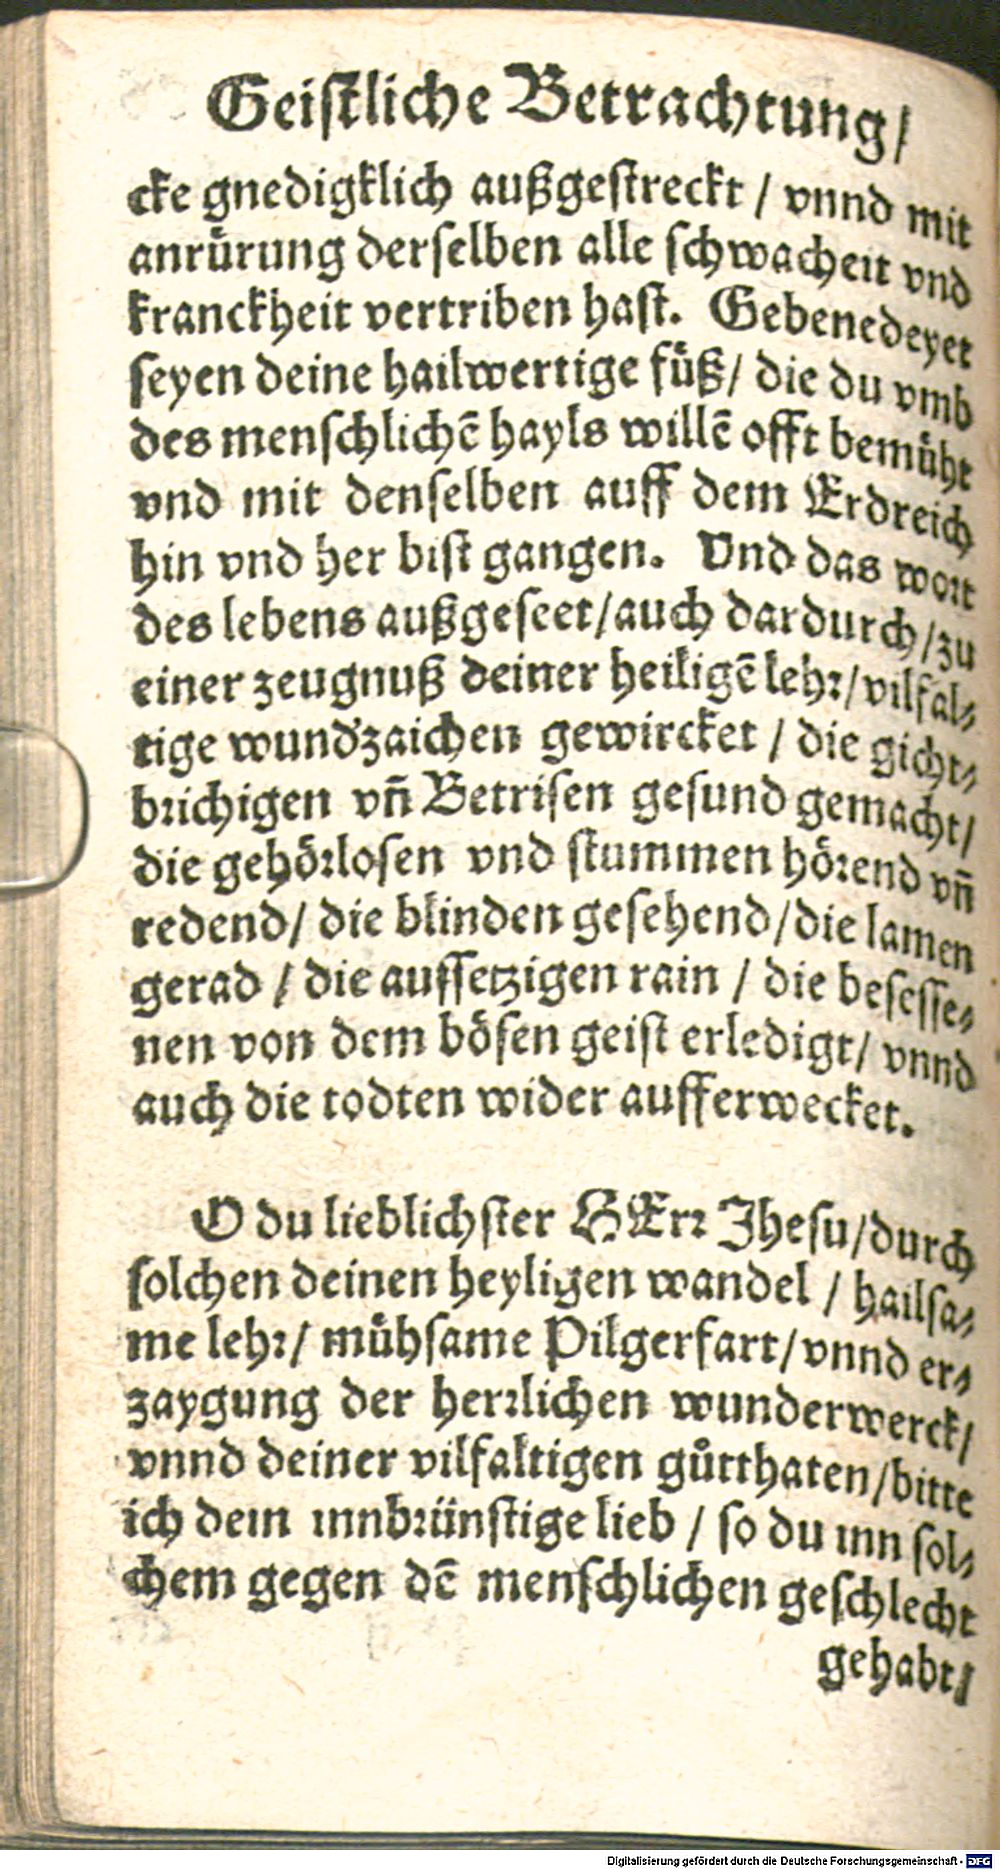 Geiſtliche Betrachtung/
cke gnedigklich außgeſtreckt / vnnd mit
anruͤrung derſelben alle ſchwacheit vnd
kranckheit vertriben haſt. Gebenedeyet
ſeyen deine hailwertige fuͤß/ die du vmb
des menſchlichē hayls willē offt bemuͤht
vnd mit denſelben auff dem Erdreich
hin vnd her biſt gangen. Vnd das wort
des lebens außgeſeet/auch dardurch/zu
einer zeugnuß deiner heiligē lehr/vilfal⸗
tige wund'zaichen gewircket / die gicht⸗
brichigen vn̄ Betriſen geſund gemacht/
die gehoͤrloſen vnd ſtummen hoͤrend vn̄
redend/ die blinden geſehend/die lamen
gerad / die auſſetzigen rain / die beſeſſe⸗
nen von dem boͤſen geiſt erledigt/ vnnd
auch die todten wider aufferwecket.
O du lieblichſter HErr Jheſu/durch
ſolchen deinen heyligen wandel / hailſa⸗
me lehr/ muͤhſame Pilgerfart/vnnd er⸗
zaygung der herrlichen wunderwerck/
vnnd deiner vilfaltigen guͤtthaten/bitte
ich dein innbrünſtige lieb / ſo du inn ſol⸗
chem gegen dē menſchlichen geſchlecht
gehabt/
Digitalisierung gefördert durch die Deutsche Forschungsgemeinschaft - DFG